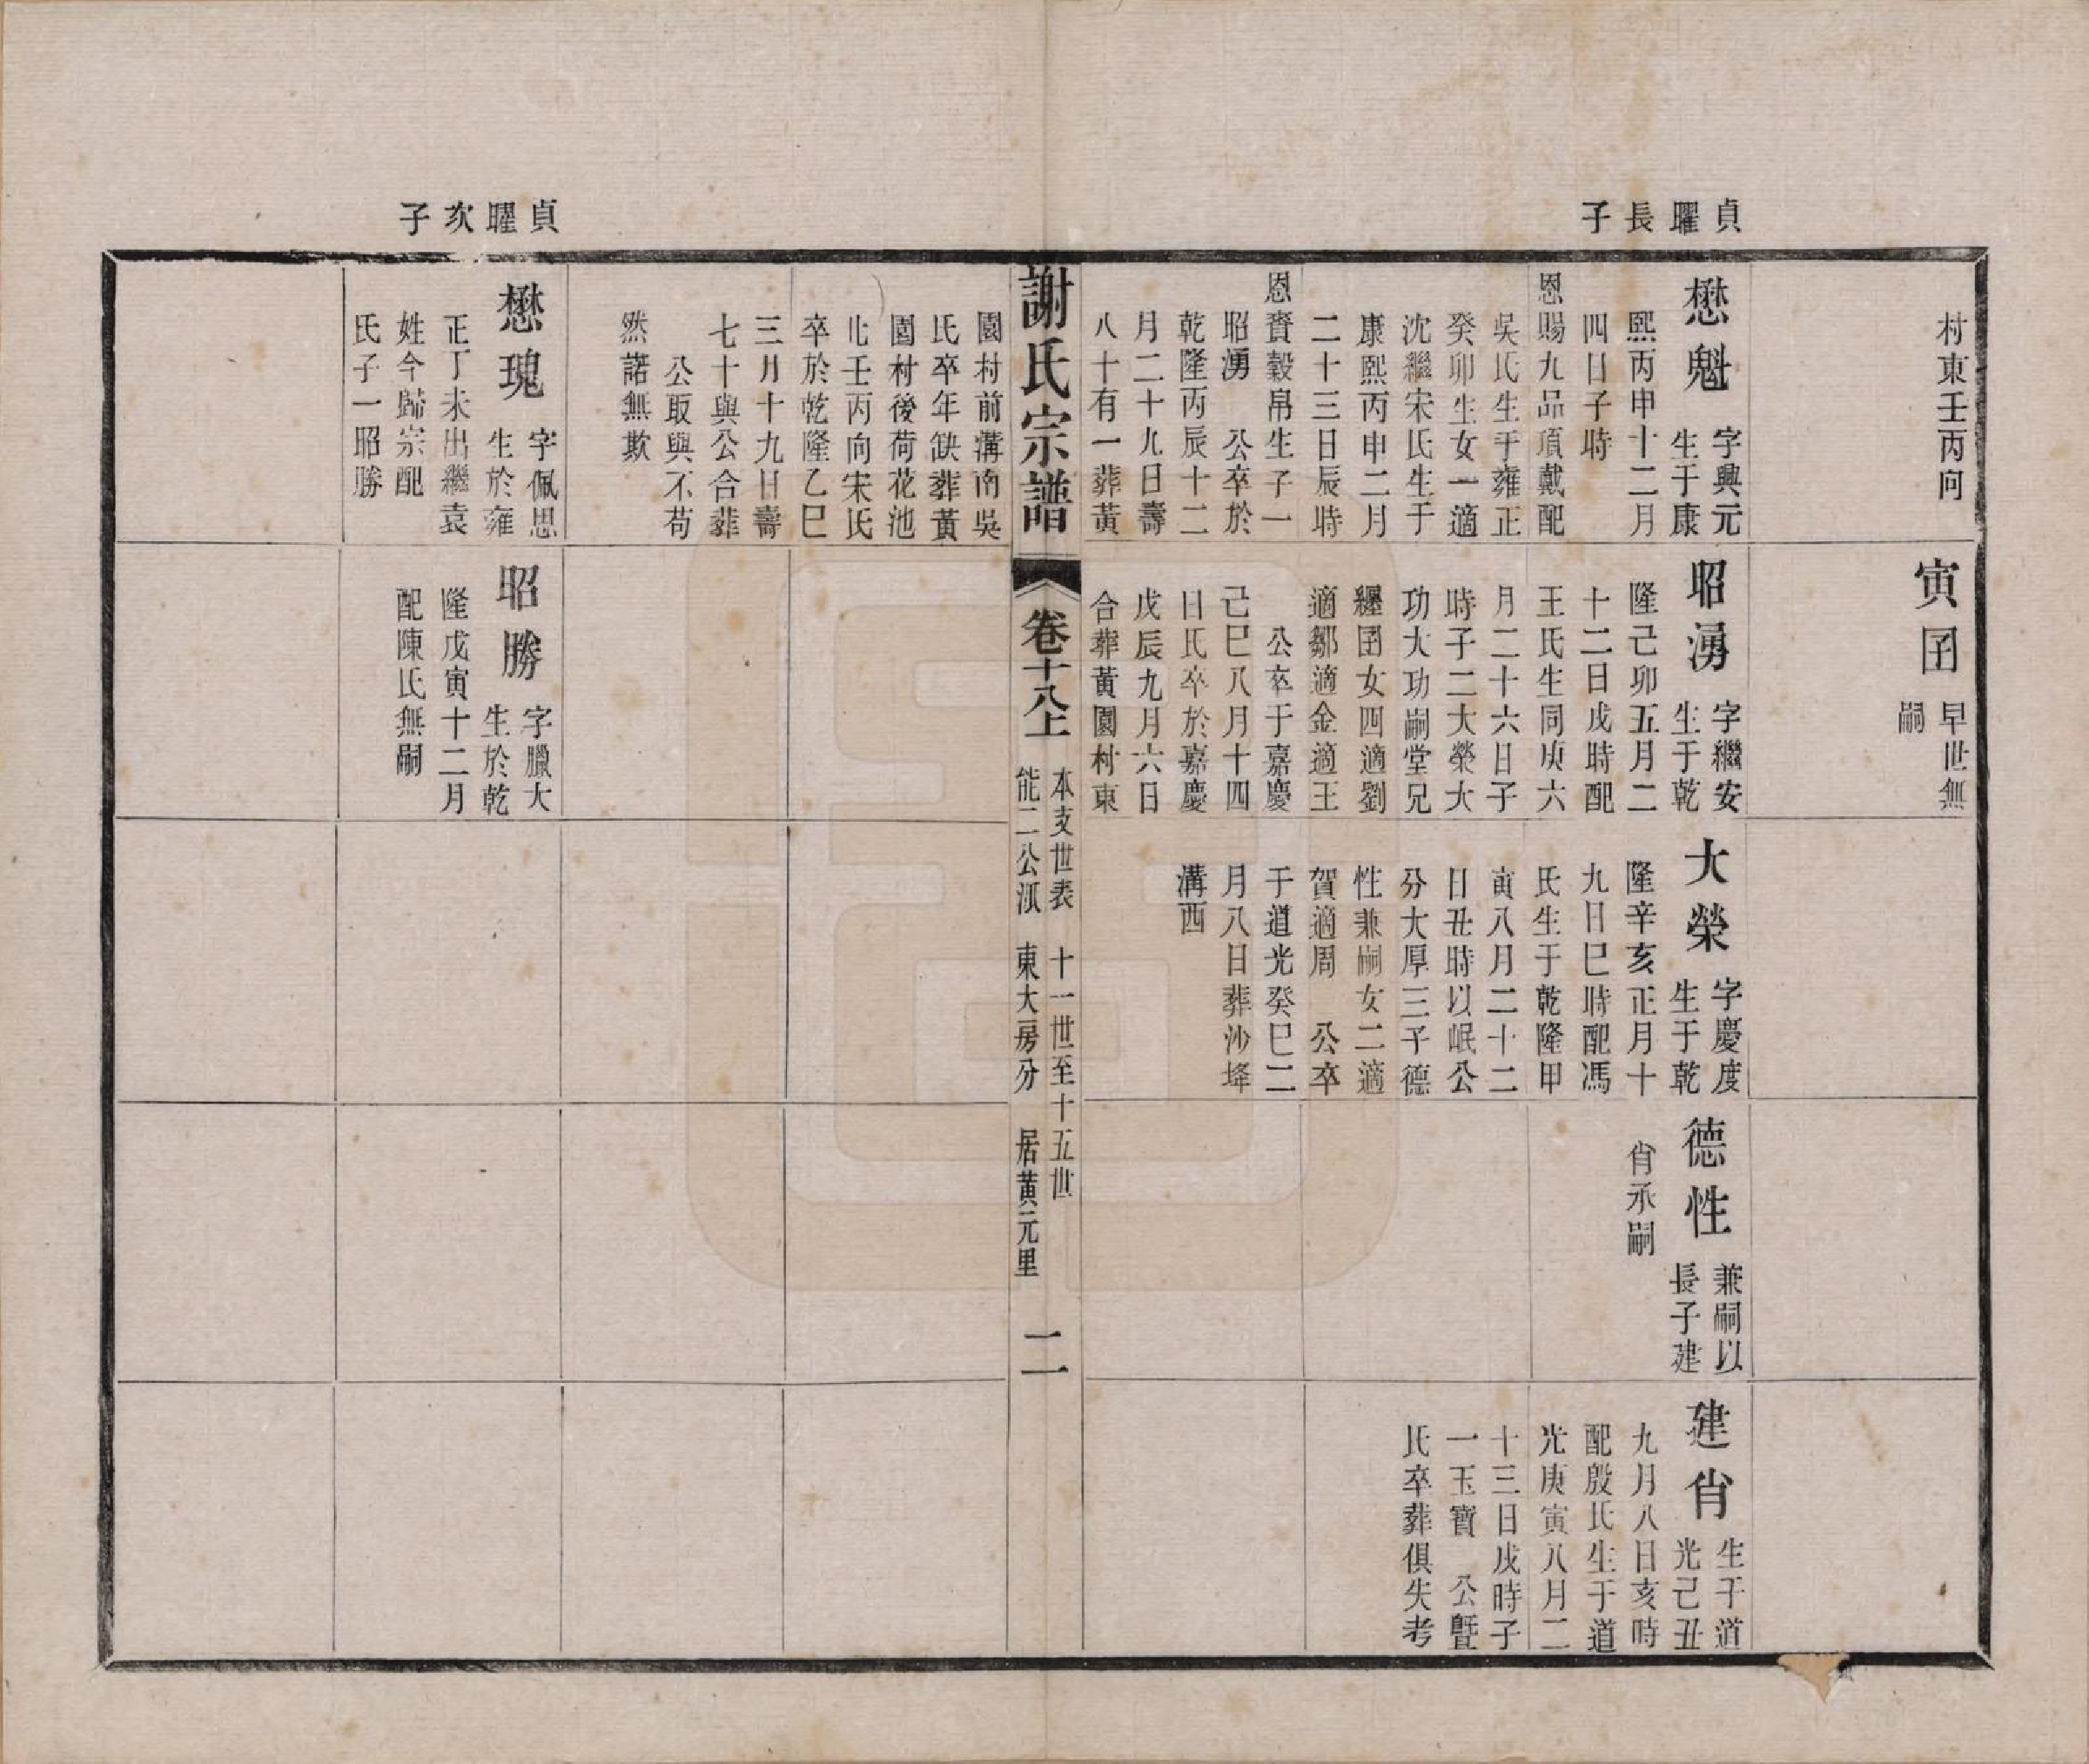 村東壬丙向
寅囝
早世無
嗣
貞曜長子
懋魁
字興元
生于康
熙丙申十二月
四日子時
恩賜九品頂戴配
吳氏生于雍正
癸卯生女一適
沈繼宋氏生于
康熙丙申二月
二十三日辰時
恩賚穀帛生子一
昭湧　公卒於
乾隆丙辰十二
月二十九日壽
八十有一葬黃
昭湧
字繼安
生于乾
隆己卯五月二
十二日戌時配
王氏生同庚六
月二十六日子
時子二大榮大
功大功嗣堂兄
纙囝女四適劉
適鄒適金適王
公卒于嘉慶
己巳八月十四
日氏卒於嘉慶
戊辰九月六日
合葬黃園村東
大榮
字慶度
生于乾
隆辛亥正月十
九日巳時配馮
氏生于乾隆甲
寅八月二十二
日丑時以岷公
分大厚三子德
性兼嗣女二適
賀適周　公卒
于道光癸巳二
月八日葬沙埄
溝西
德性
兼嗣以
長子建
肖承嗣
建肖
生于道
光己丑
九月八日亥時
配殷氏生于道
光庚寅八月二
十三日戌時子
一玉寶　公曁
氏卒葬俱失考
謝氏宗譜
卷十八上
本支世表　十一世至十五世
能二公派　東大房分　居黃元里
二
園村前溝南吳
氏卒年缺葬黃
園村後荷花池
北壬丙向宋氏
卒於乾隆乙巳
三月十九日壽
七十與公合葬
公取與不苟
然諾無欺
貞曜次子
懋瑰
字佩思
生於雍
正丁未出繼袁
姓今歸宗配
氏子一昭勝
昭勝
字臘大
生於乾
隆戊寅十二月
配陳氏無嗣